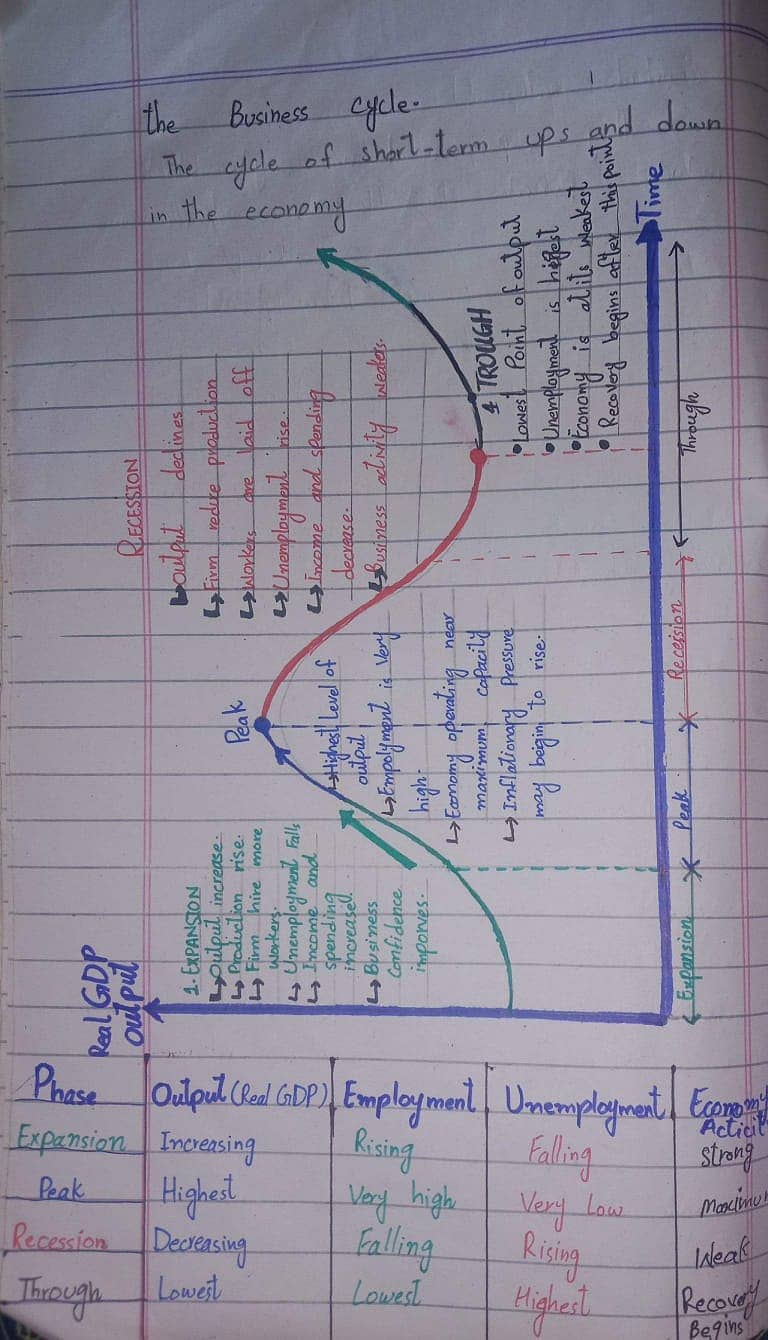 the Business cycle.
The cycle of short-term ups and down
in the economy
Real GDP
output
1. EXPANSION
↳ Output increase.
↳ Production rise.
↳ Firm hire more
workers.
↳ Unemployment Falls
↳ Income and
spending
increase.
↳ Business
Confidence
imporves.
Peak
↳ Highest Level of
output
↳ Empolyment is Very
high.
↳ Economy operating near
maximum capacity
↳ Inflationary Pressure
may begin to rise.
RECESSION
↳ Output declines
↳ Firm reduce production
↳ Workers are laid off
↳ Unemployment rise.
↳ Income and spending
decrease.
↳ Business activity weakers.
4 TROUGH
• Lowest Point of output
• Unemployment is highest
• Economy is at its weakest
• Recovery begins after this point
Time
Expansion
Peak
Recession
Through
Phase Output (Real GDP) Employment Unemployment Economy
Acticit
Expansion Increasing Rising Falling strong
Peak Highest Very high Very Low Maximu
Recession Decreasing Falling Rising Weak
Through Lowest Lowest Highest Recovery
Begins